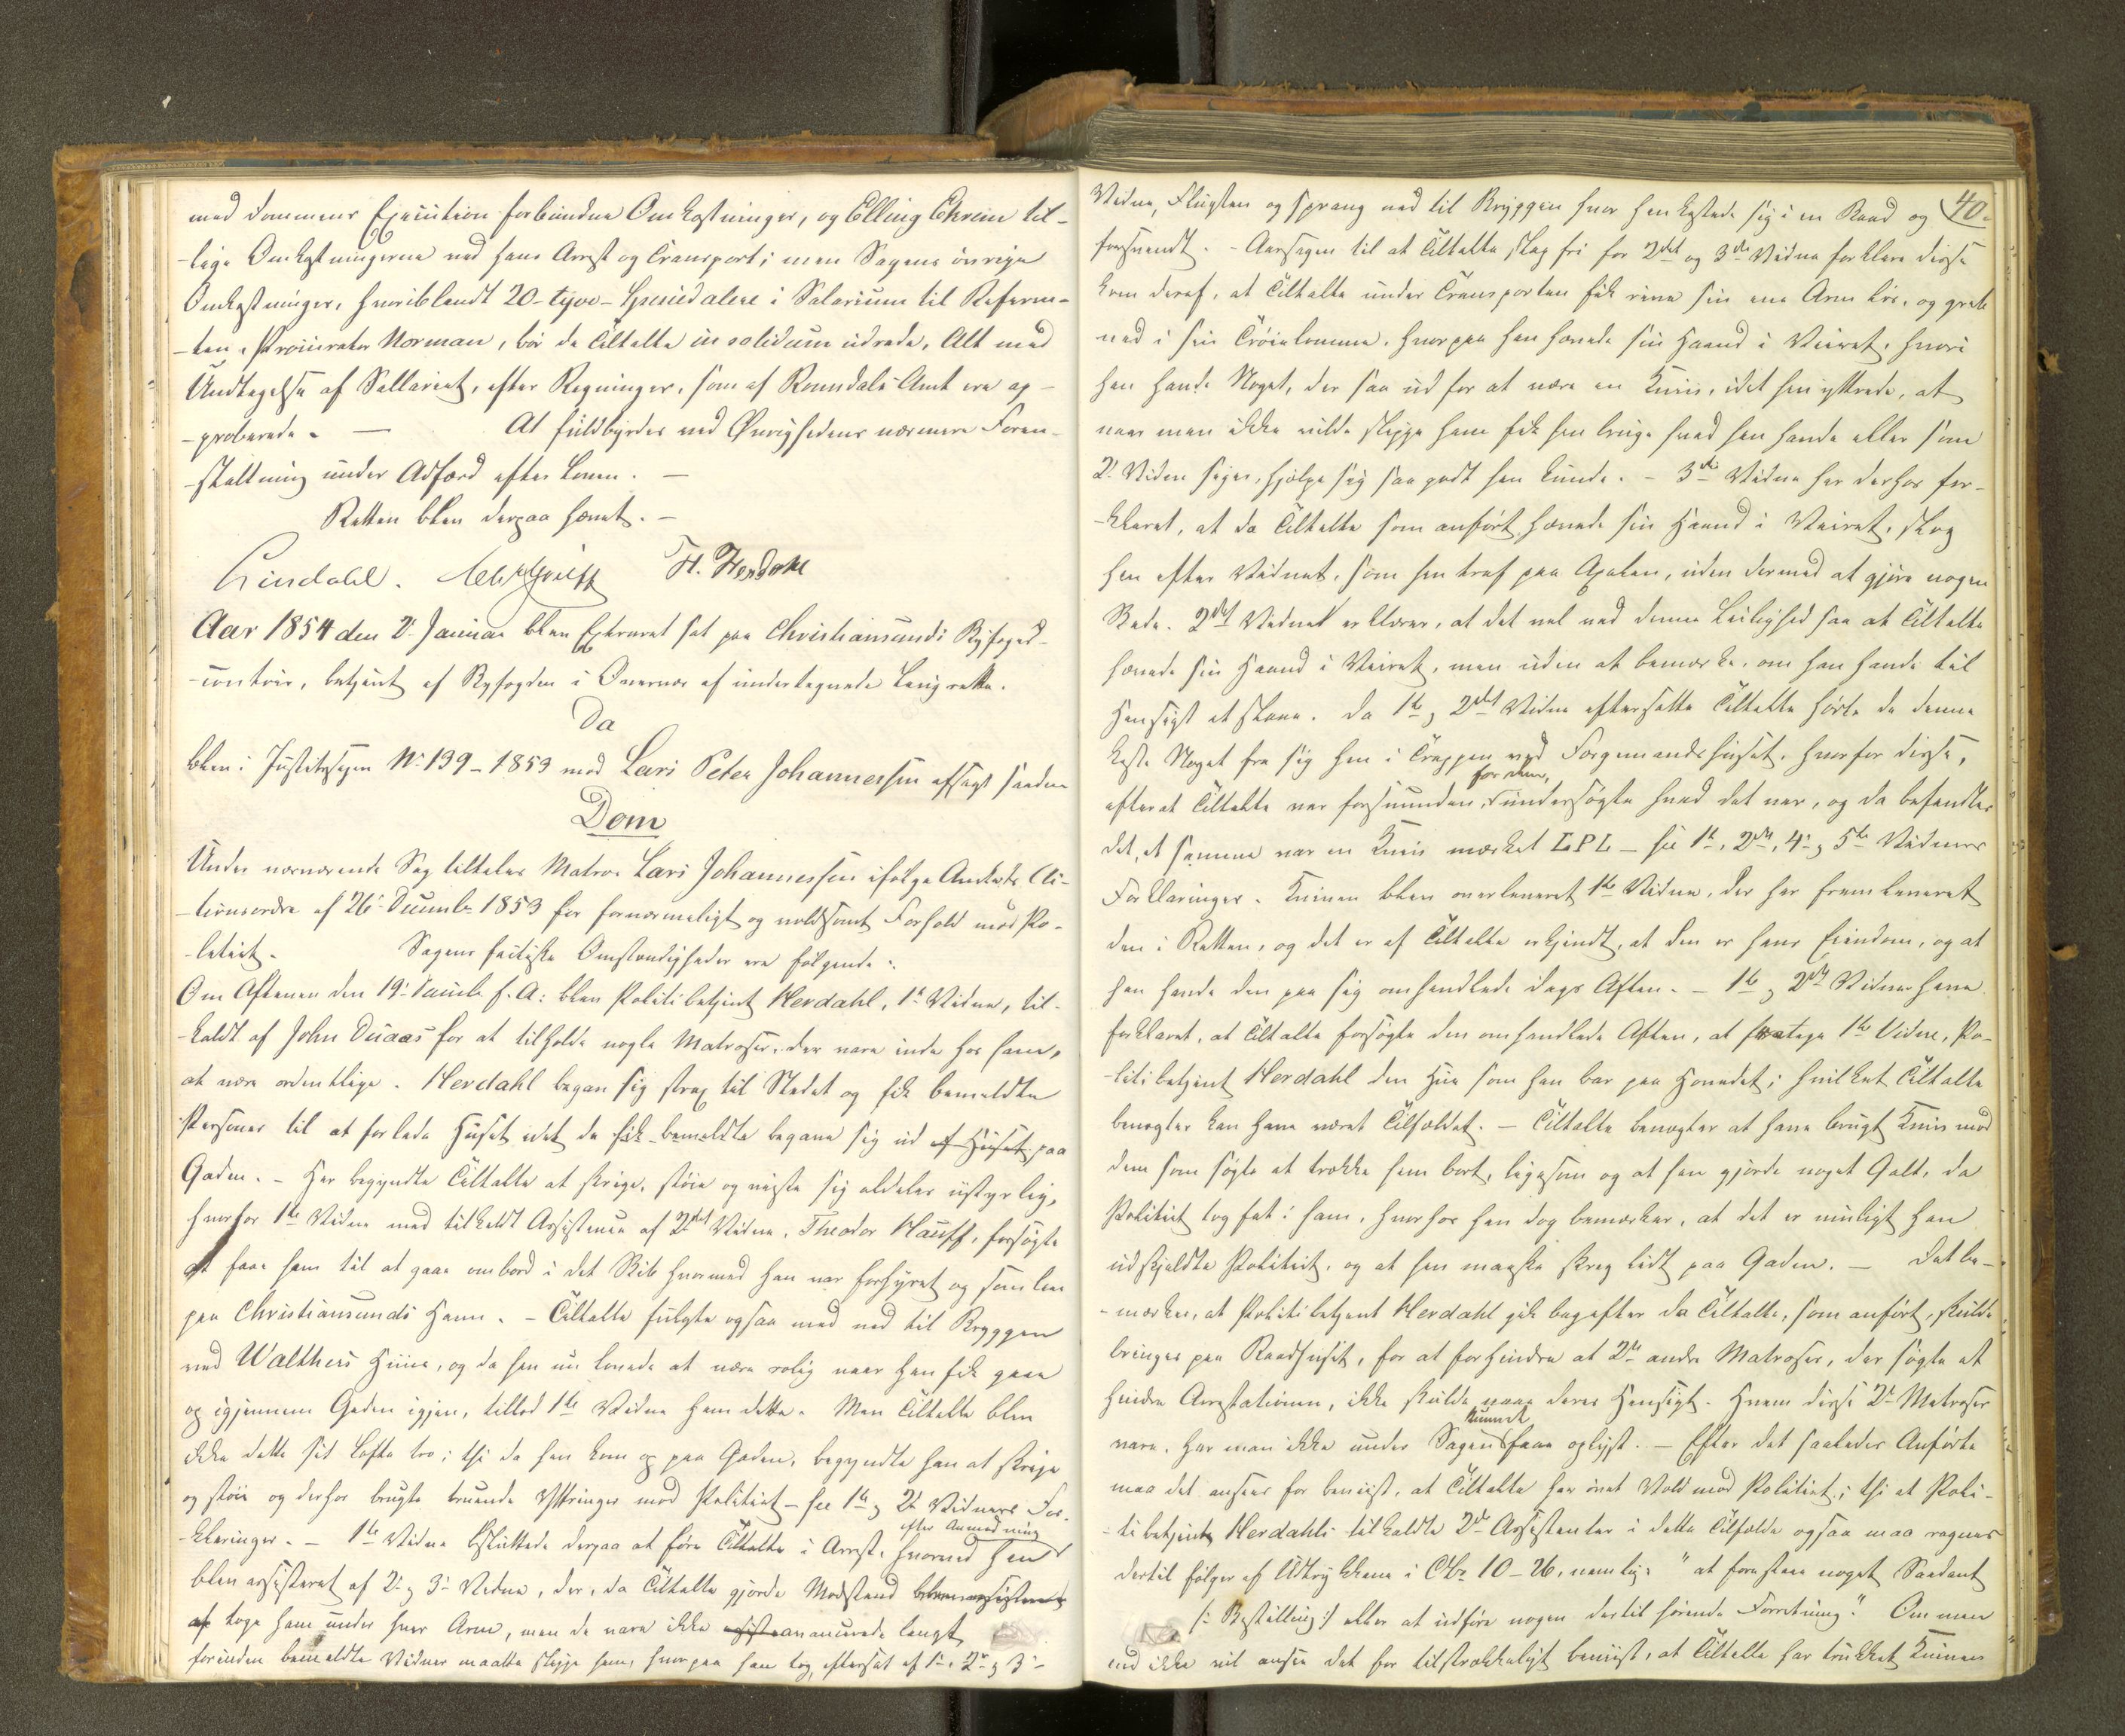 med Dommens Execution forbundne Omkostninger, og Elling Ehrem til-
-lige Omkostningerne ved hans Arrest og Transport; men Sagens övrige
Omkostninger, hvoriblandt 20 - tyve - Speciedalere i Salarium til Referen-
-ten, Procurator Norman, bör de Tiltalte in solidum udrede, Alt med
Undtagelse af Sallariet, efter Regninger, som af Romsdals Amt ere ap-
-proberede. — At fuldbyrdes ved Øvrighedens nærmere Foran-
-staltning under Adfærd efter Loven. —
Retten blev derpaa hævet. —
Lindahl. H. Herdahl
Aar 1854 den 2. Januar blev Extraret sat paa Christiansunds Byfoged-
-contoir, betjent af Byfogden i Overvær af undertegnede Laugrette.
Da
blev i Justitssagen No 139 - 1853 mod Lars Peter Johannessen afsagt saadan
Dom
Under nærværende Sag tiltales Matros Lars Johannessen ifølge Amtets Ac-
-tionsordre af 26 Decemb. 1853 for fornærmeligt og voldsomt Forhold mod Po-
-litiet. Sagens factiske Omstændigheder ere følgende:
Om Aftenen den 19 Decemb. f. A. blev Politibetjent Herdahl, 1te Vidne, til-
-kaldt af John Duaas for at tilholde nogle Matroser, der vare inde hos ham,
at være ordentlige. Herdahl begav sig strax til Stedet og fik bemeldte
Personer til at forlade Huset idet de fik bemeldte begave sig ud af Huset paa
Gaden. - Her begyndte Tiltalte at skrige, støie og viiste sig aldeles ustyrlig,
hvorfor 1te Vidne med tilkaldt Assistence af 2det Vidne, Theodor Hauff, forsøgte
at faae ham til at gaae ombord i det Skib hvormed han var forhyret og som laae
paa Christiansunds Havn. - Tiltalte fulgte ogsaa med ned til Bryggen
ved Walthers Huus, og da han nu lovede at være rolig naar han fik gaae
op igjennem Gaden igjen, tillod 1te Vidne ham dette. Men Tiltalte blev
ikke dette sit Løfte tro; thi da han kom op paa Gaden, begyndte han at skrige
og støie og derhos brugte truende Yttringer mod Politiet - see 1te og 2t Vidners For-
efter Anmodning
-klaringer. - 1te Vidne besluttede derpaa at føre Tiltalte i Arrest, hvorved han
blev assisteret af 2 og 3 Vidne, der, da Tiltalte gjorde Modstand blev assisteret
af toge ham under hver Arm, men de vare ikke avancerede langt
forinden bemeldte Vidner maatte slippe ham, hvorpaa han tog, eftersat af 1te, 2 og 3
40.
Vidne, Flugten og sprang ned til Bryggen hvor han kastede sig i en Baad og
forsvandt. - Aarsagen til at Tiltalte slap fri for 2det og 3die Vidne forklare disse
kom deraf, at Tiltalte under Transporten fik rive sin ene Arm løs, og greb
ned i sin Trøielomme, hvorpaa han hævede sin Haand i Veiret, hvori
han havde Noget, der saa ud for at være en Kniv, idet han yttrede, at
naar man ikke vilde slippe ham fik han bruge hvad han havde eller som
2. Vidne siger, hjelpe sig saa godt han kunde. - 3die Vidne har derhos for-
-klaret, at da Tiltalte som anført hævede sin Haand i Veiret, slog
han efter Vidnet, som han traf paa Axelen, uden dermed at gjøre nogen
Skade. 2det Vidne erklærer, at det vel ved denne Leilighed saa at Tiltalte
hævede sin Haand i Veiret, men uden at bemærke, om han havde til
Hensigt at slaae. Da 1te og 2det Vidne eftersatte Tiltalte hørte de denne
kaste Noget fra sig hen i Trappen ved Forgemandshuset, hvorfor disse,
for dem,
efterat Tiltalte var forsvunden, undersøgte hvad det var, og da befandtes
det, at samme var en Kniv mærket LPL - see 1te, 2det, 4de og 5te Vidners
Forklaringer. Kniven blev overleveret 1te Vidne, der har fremleveret
den i Retten, og det er af Tiltalte erkjendt, at den er hans Eiendom, og at
han havde den paa sig omhandlede Dags Aften. - 1te og 2det Vidner have
forklaret, at Tiltalte forsøgte den omhandlede Aften, at fratage 1te Vidne, Po-
-litibetjent Herdahl den Hue som han bar paa Hovedet; hvilket Tiltalte
benægter kan have været Tilfældet. - Tiltalte benægter at have brugt Kniv mod
dem som søgte at trække ham bort, ligesom og at han gjorde noget Galt, da
Politiet tog fat i ham, hvorhos han dog bemærker, at det er muligt han
udskjeldte Politiet, og at han maaske skreg lidt paa Gaden. - Det be-
-mærkes, at Politibetjent Herdahl gik bagefter da Tiltalte, som anført, skulde
bringes paa Raadhuset, for at forhindre at 2de andre Matroser, der søgte at
hindre Arrestationen, ikke skulde naae deres Hensigt. Hvem disse 2de Matroser
kunnet
vare, har man ikke under Sagen faae oplyst. - Efter det saaledes Anførte
maa det ansees for beviist, at Tiltalte har øvet Vold mod Politiet; thi at Poli-
-tibetjent Herdahls tilkaldte 2de Assistenter i dette Tilfælde ogsaa maa regnes
dertil følger af Udtrykkene i Cbr. 10 - 26, nemlig: "at forestaae noget Saadant
(: Bestilling :) eller at udføre nogen dertil hørende Forretning". Om man
end ikke vil ansee det for tilstrækkeligt beviist, at Tiltalte har trukket Kniven